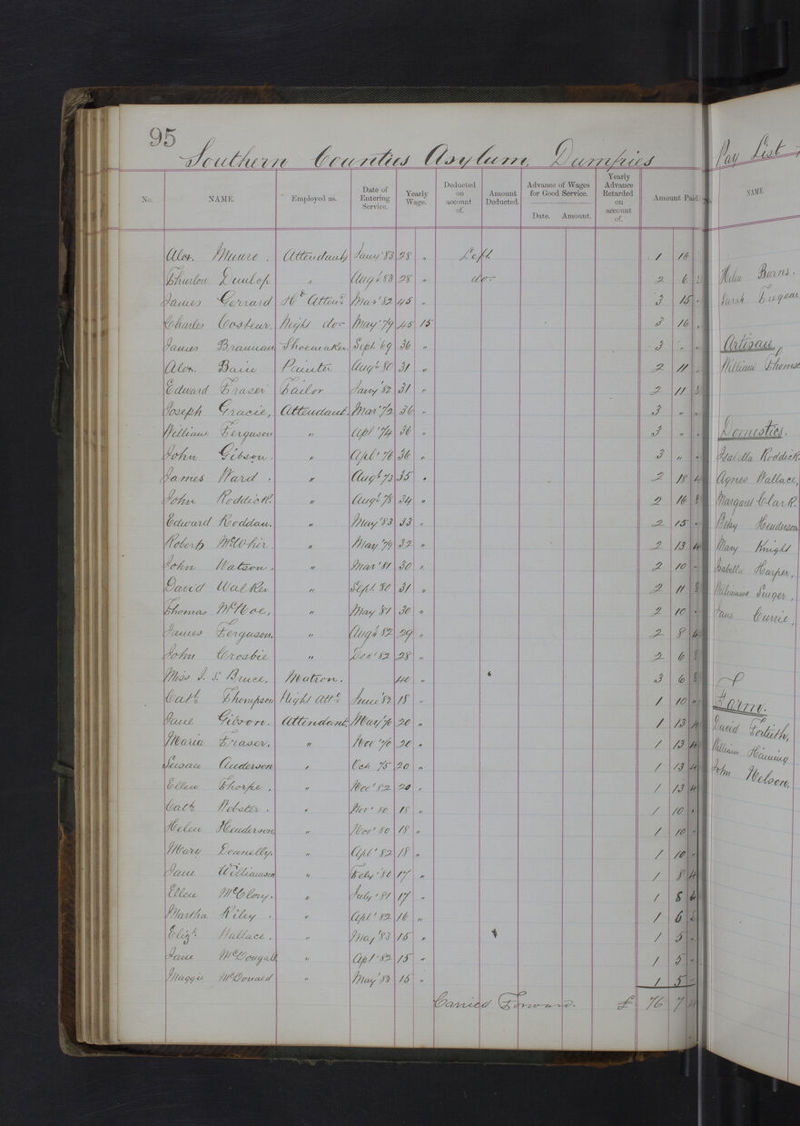 95
Southern Counties Asylum, Dumfries
Pay List
No. NAME. Employed as. Date of Entering Service. Yearly Wage. Deducted on account of. Amount Deducted. Advance of Wages for Good Service. Date. Amount. Yearly Advance Retarded on account of. Amount Paid.
NAME
Alex. Munro. Attendant Jany '83 28 " Left 1 16
Thurlow Dunlop " Augt 83 28 " do 2 6
James Gerrard Hd Attend Mar '82 45 " 3 15 "
Charles Costeur. Night do May '79 45 15 3 16
James Brannan Shoemaker Sept. 69 36 " 3 " "
Alex. Bain Painter Augt 80 31 " 2 11
Edward Fraser Tailor Jany '82 31 " 2 11 8
Joseph Gracie, Attendant. Mar '72 36 " 3 " "
William Ferguson " Apl '74 36 " 3 " "
John Gibson. " Apl '76 36 " 3 " "
James Ward. " Augt 73 35 " 2 18 4
John Roddick. " Augt 78 34 " 2 16 8
Edward Roddan. " May '83 33 " 2 15 "
Robert McWhir. " May '79 32 " 2 13 4
John Watson. " Mar '81 30 " 2 10 "
David Walker " Sept 80 31 " 2 11 8
Thomas McKoe, " May 81 30 " 2 10 "
James Ferguson. " Augt 82 29 " 2 8 4
John Crosbie " Dec '82 28 " 2 6 8
Miss J. S. Bruce, Matron. 40 " 3 6 8
Cath. Thompson Night Attt June '82 18 " 1 10 "
Jane Gibson. Attendant May '70 20 " 1 13 4
Maria Fraser. " Nov '70 20 " 1 13 4
Susan Anderson " Oct 75 20 " 1 13 4
Ellen Thorpe. " Nov' 82 20 " 1 13 4
Cath. Webster. " Nov' 80 18 " 1 10 "
Helen Henderson " Nov' 80 18 " 1 10 "
Mary Donnelly. " Apl' 82 18 " 1 10 "
Jane Williamson " Feby '80 17 " 1 8 4
Ellen McClory. " July '81 17 " 1 8 4
Martha Riley. " Apl' 82 16 " 1 6
Elizh Wallace. " May '83 15 " 1 5 "
Jane McDougall " Apl '82 15 " 1 5 "
Maggie McDonald " May '83 15 " 1 5 "
Carried Forward. £ 76 7
Helen Burns.
Sarah
Artisan
William Thomso
Domestics.
Isabella Roddick
Agnes Wallace,
Margaret Clark.
Betsy Henderson
Mary Knight
Isabella Harper,
Williamina Singer.
Jane Currie,
Farm.
David
William Haining
John Nelson,